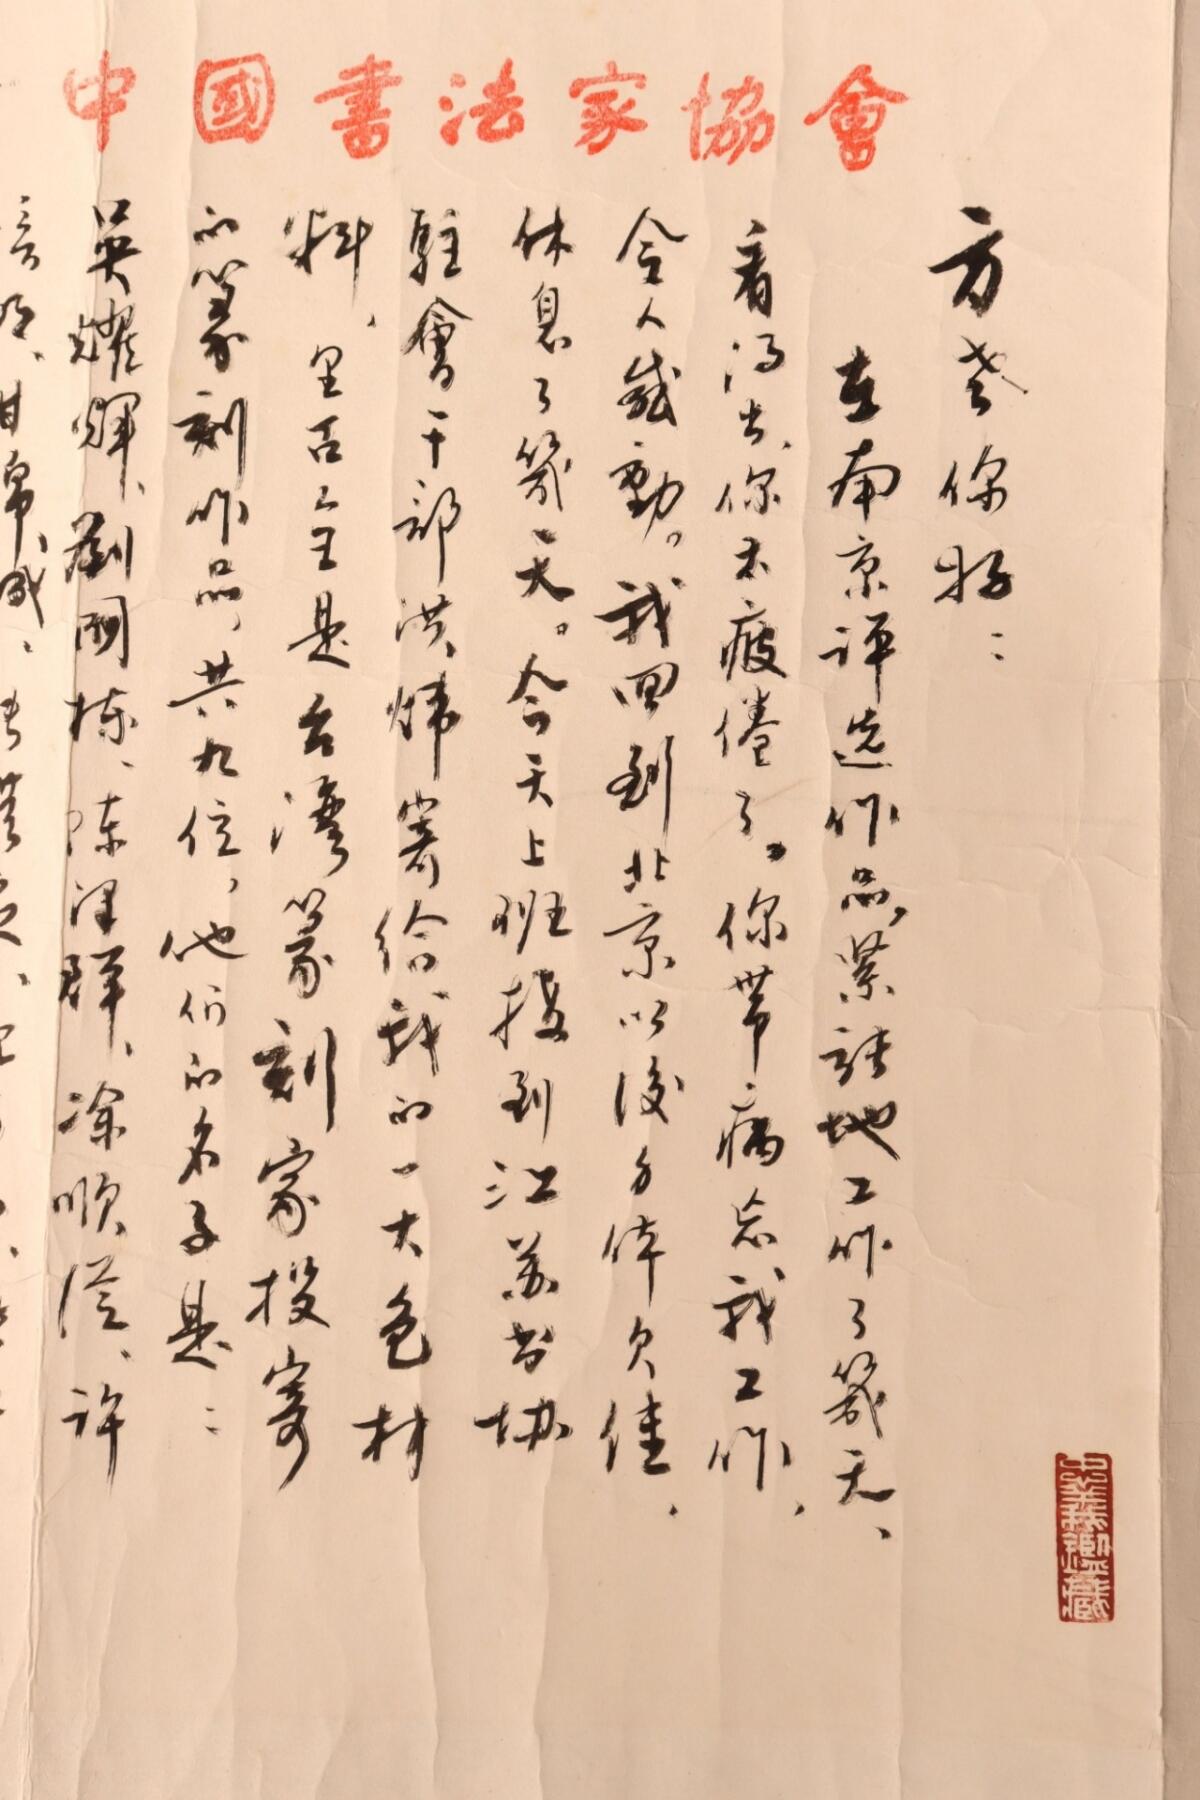 中國書法家協會
方老你好：
在南京评选作品，紧张地工作了幾天、
看得出、你太疲倦了。你带病忘我工作，
令人感動。我回到北京以後身体欠佳，
休息了幾天。今天上班接到江苏书协
駐會干部洪煒寄给我的一大包材
料，里面全是台灣篆刻家投寄
的篆刻作品，共九位，他们的名子是：
吳耀輝、劉國棟、陈澤群、涂順從、許